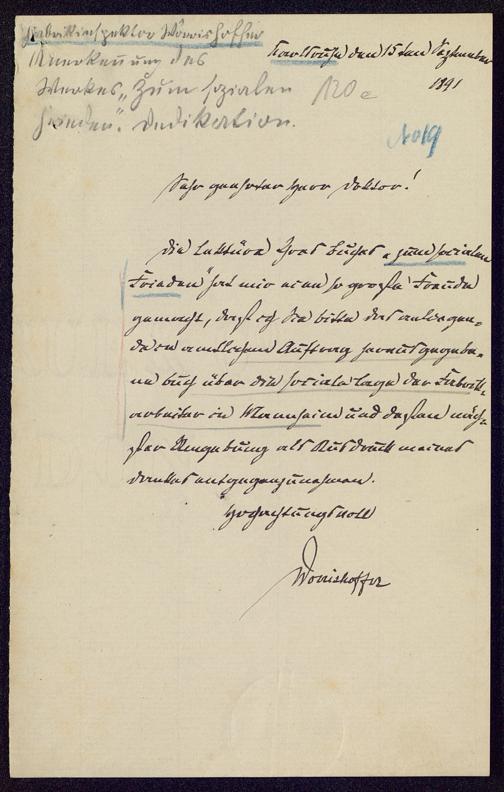 Fabrikinspektor Wörrishoffer
Anerkennung des
Werkes „Zum sozialen
Frieden". Dedikation.
120 c
Karlsruhe den 15ten September
1891
No 19
Sehr geehrter Herr Doktor!
Die Lektüre Ihres Buches „zum socialen
Frieden" hat mir eine so große Freude
gemacht, daß ich Sie bitte das anliegen-
de in amtlichem Auftrag herausgegebe-
ne buch über die sociale Lage der Fabrik-
arbeiter in Mannheim und dessen näch-
ster Umgebung als Ausdruck meines
Dankes entgegenzunehmen.
Hochachtungsvoll
Wörrishoffer